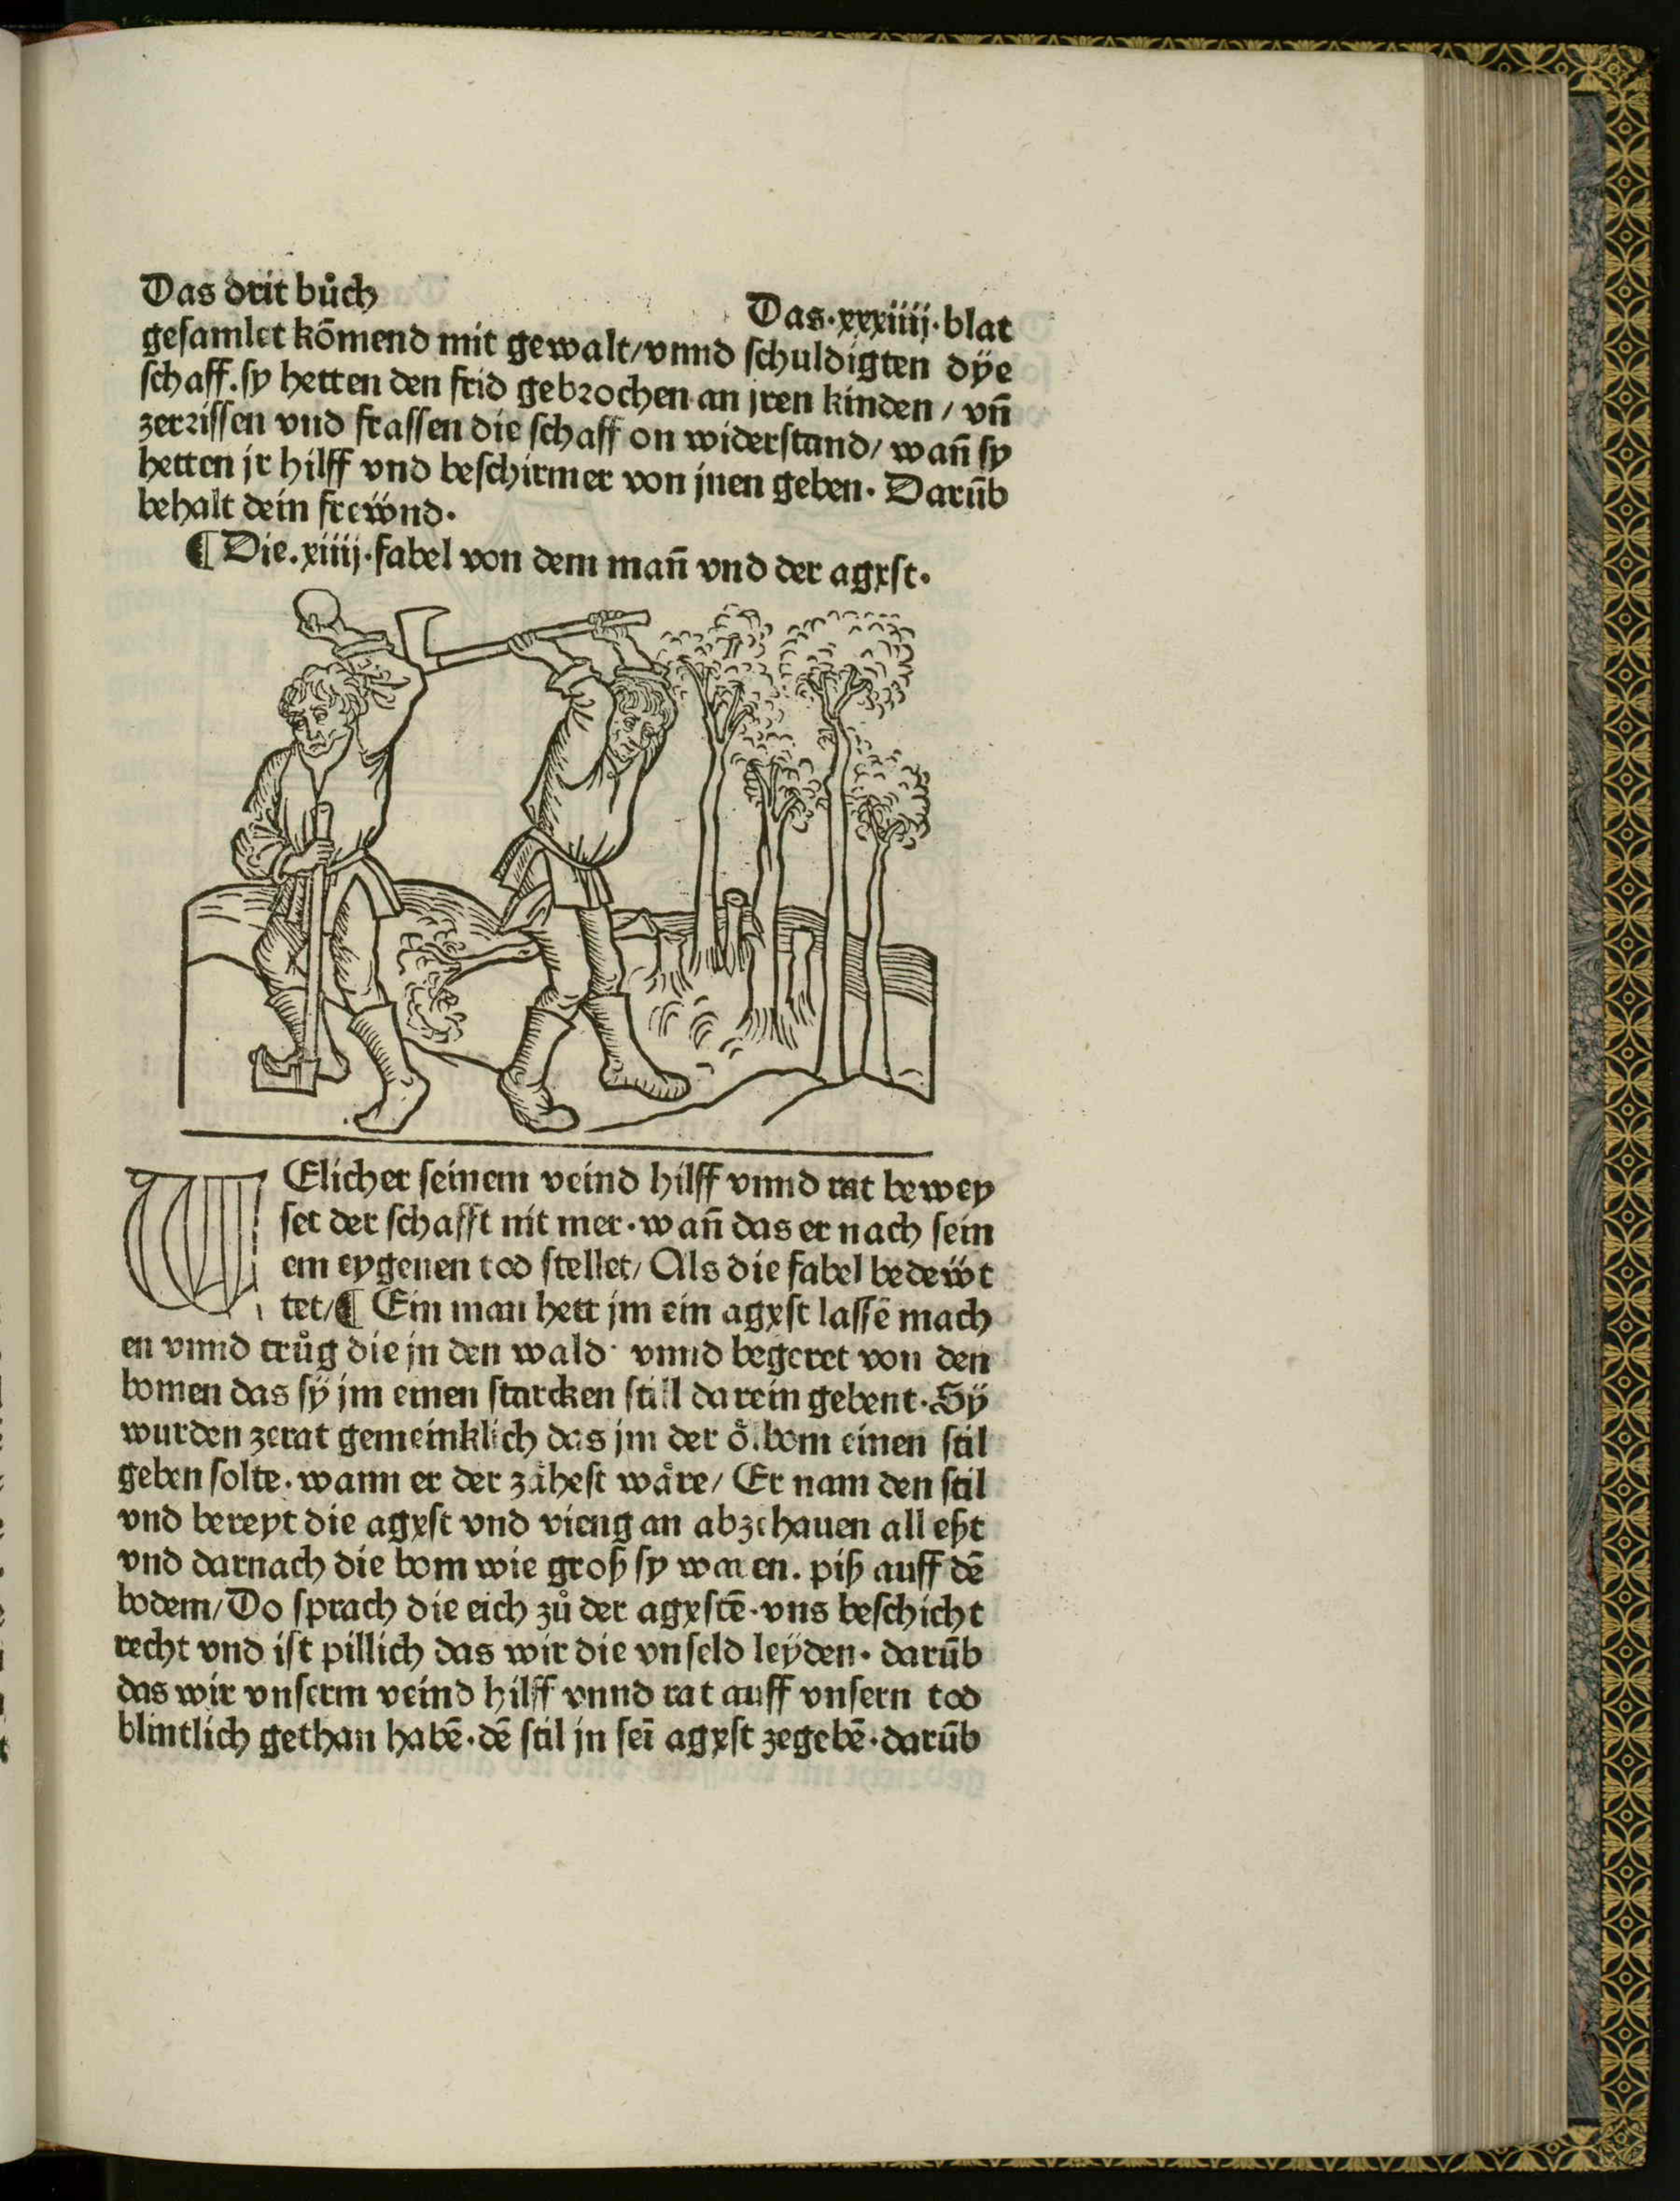 Das drit bůch
Das·xxxiiij·blat
gesamlet kōmend mit gewalt/vnnd schuldigten dÿe
schaff.sy hetten den frid gebrochen an jren kinden / vn̄
zerrissen vnd frassen die schaff on widerstand/ wan̄ sy
hetten jr hilff vnd beschirmer von jnen geben. Darūb
behalt dein frewnd.
¶ Die.xiiij.fabel von dem man̄ vnd der agxst.
WElicher seinem veind hilff vnnd rat bewey
set der schafft nit mer·wan̄ das er nach sein
em eygenen tod stellet/ Als die fabel bedewt
tet/¶ Ein man hett jm ein agxst lassē mach
en vnnd trůg die jn den wald· vnnd begeret von den
bomen das sÿ jm einen starcken still darein gebent·Sÿ
wurden zerat gemeinklich das jm der ölbom einen stil
geben solte·wann er der zähest wåre/ Er nam den stil
vnd bereyt die agxst vnd vieng an abzehauen all eßt
vnd darnach die bom wie groß sy waren. piß auff dē
bodem/Do sprach die eich zů der agxstē·vns beschicht
recht vnd ist pillich das wir die vnseld leÿden· darūb
das wir vnserm veind hilff vnnd rat auff vnsern tod
blintlich gethan habē·dē stil jn sei̅ agxst zegebē·darūb